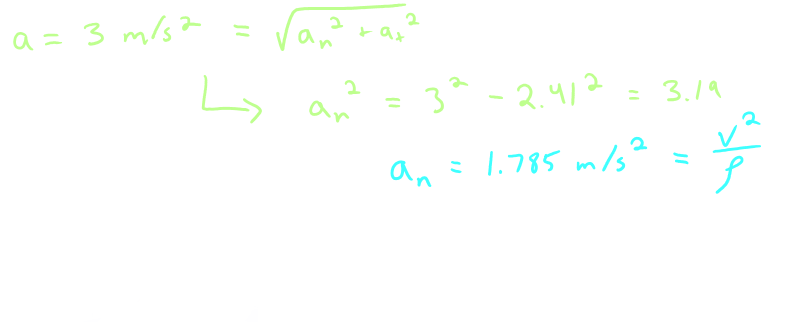 a = 3 m/s² = √(aₙ² + aₜ²)
↳ aₙ² = 3² - 2.41² = 3.19
aₙ = 1.785 m/s² = v²/ρ